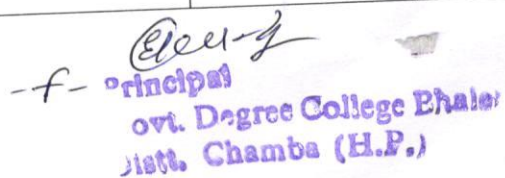 -f- Principal
ovt. Degree College Bhale
istt. Chamba (H.P.)